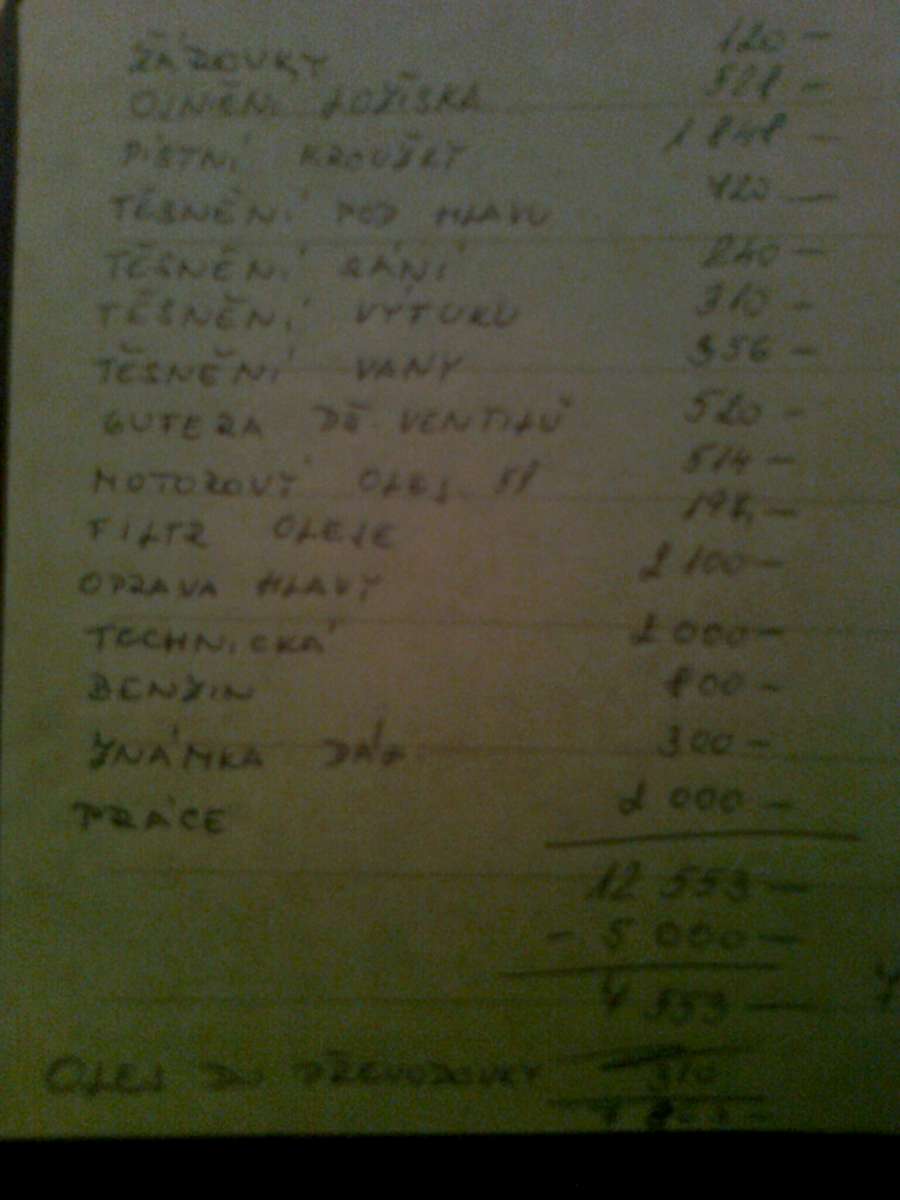 ŽÁROVKY 120 –
OJNIČNÍ LOŽISKA 528 –
PÍSTNÍ KROUŽKY 1 848 –
TĚSNĚNÍ POD HLAVU 420 –
TĚSNĚNÍ SÁNÍ 240 –
TĚSNĚNÍ VÝFUKU 310 –
TĚSNĚNÍ VANY 356 –
GUFERA DĚ VENTILŮ 520 –
MOTOROVÝ OLEJ 5l 514 –
FILTR OLEJE 198,–
OPRAVA HLAVY 2 100 –
TECHNICKÁ 2 000 –
BENZIN 800 –
ZNÁMKA DÁL. 300 –
PRÁCE 2 000 –
12 553 –
– 5 000 –
7 553 –
OLEJ DO PŘEVODOVKY 310